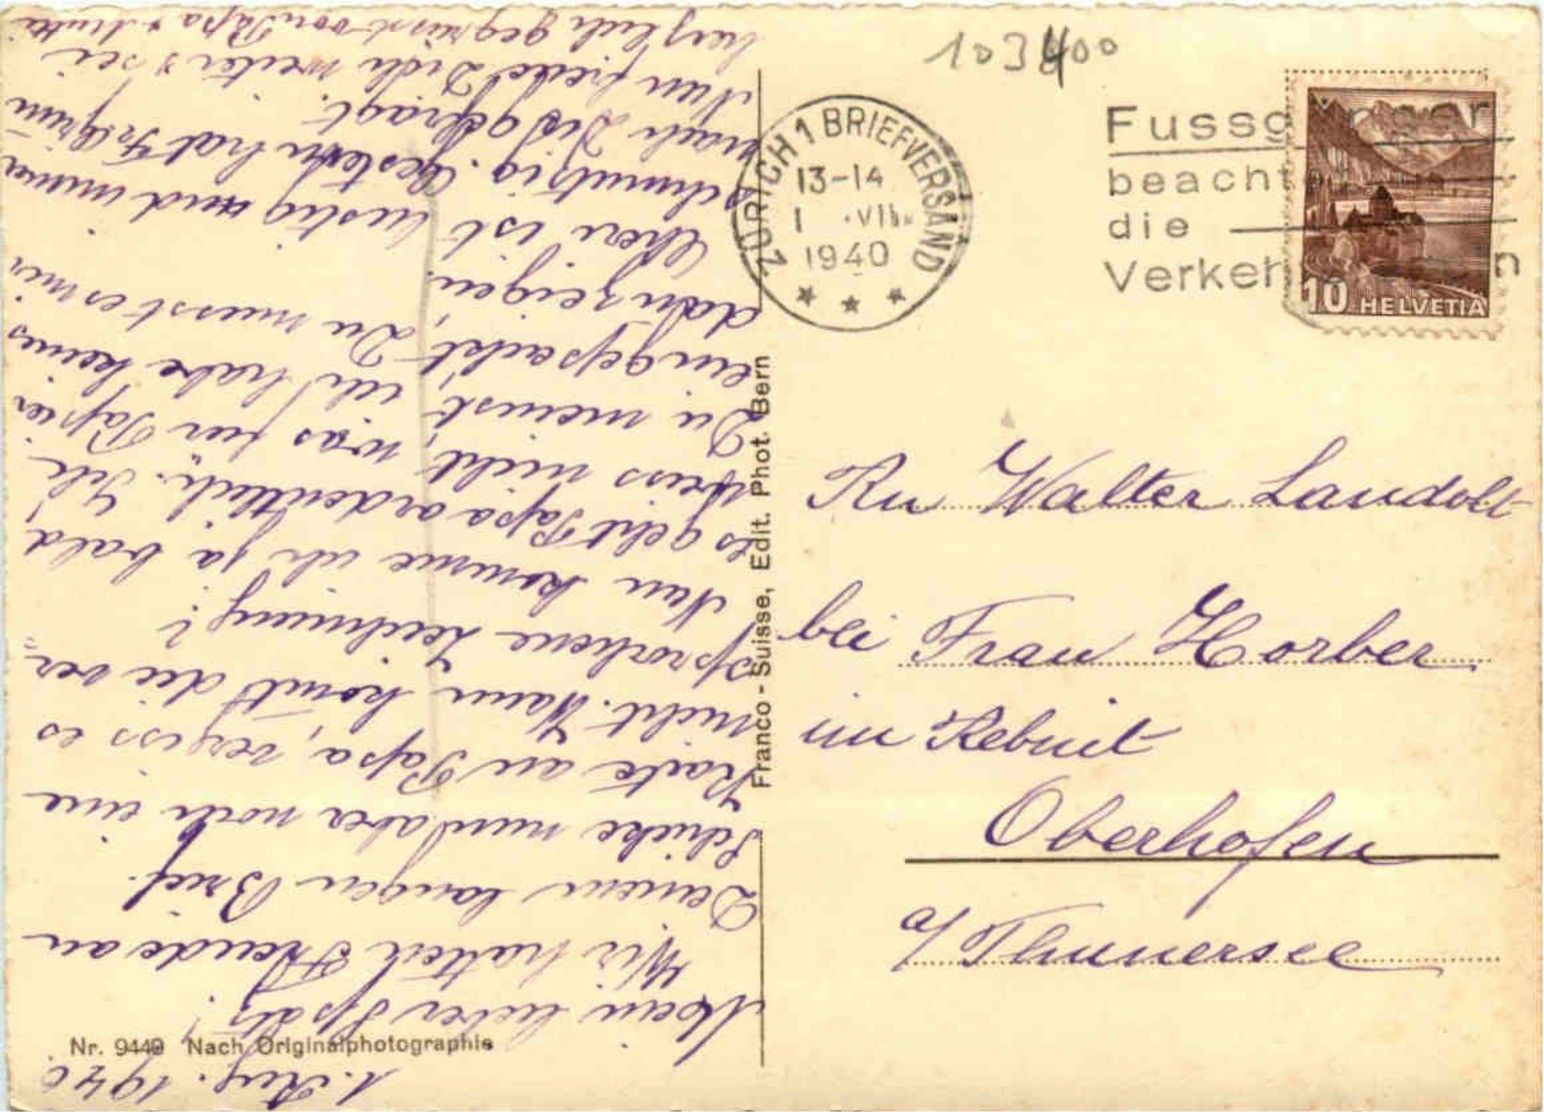 103400
ZÜRICH 1 BRIEFVERSAND
13-14
1 VIII
1940
Fussg nger
beach
die
Verkeh n
10 HELVETIA
An Walter Landolt
bei Frau Horber
im Rebuit
Oberhofen
a/Thunersee
Franco-Suisse, Edit. Phot. Bern
Nr. 9440 Nach Originalphotographie
1. Aug. 1940
Mein lieber Spatz!
Wir hatten Freude an
Deinem langen Brief.
Schicke nun aber noch eine
Karte an Papa, vergiss es
nicht. Wann kommt die ver-
sprochene Zeichnung?
Nun komme ich ja bald,
es geht Papa ordentlich. Ich
weiss nicht, was für Papier
Du meinst, ich habe keins
eingepackt, Du musst es mir
dann zeigen.
Cheri ist lustig und immer
schmutzig. Gestern hat
nach Dir gefragt.
Nun Dich weiter & sei
herzlich gegrüsst von Papa & Mutti